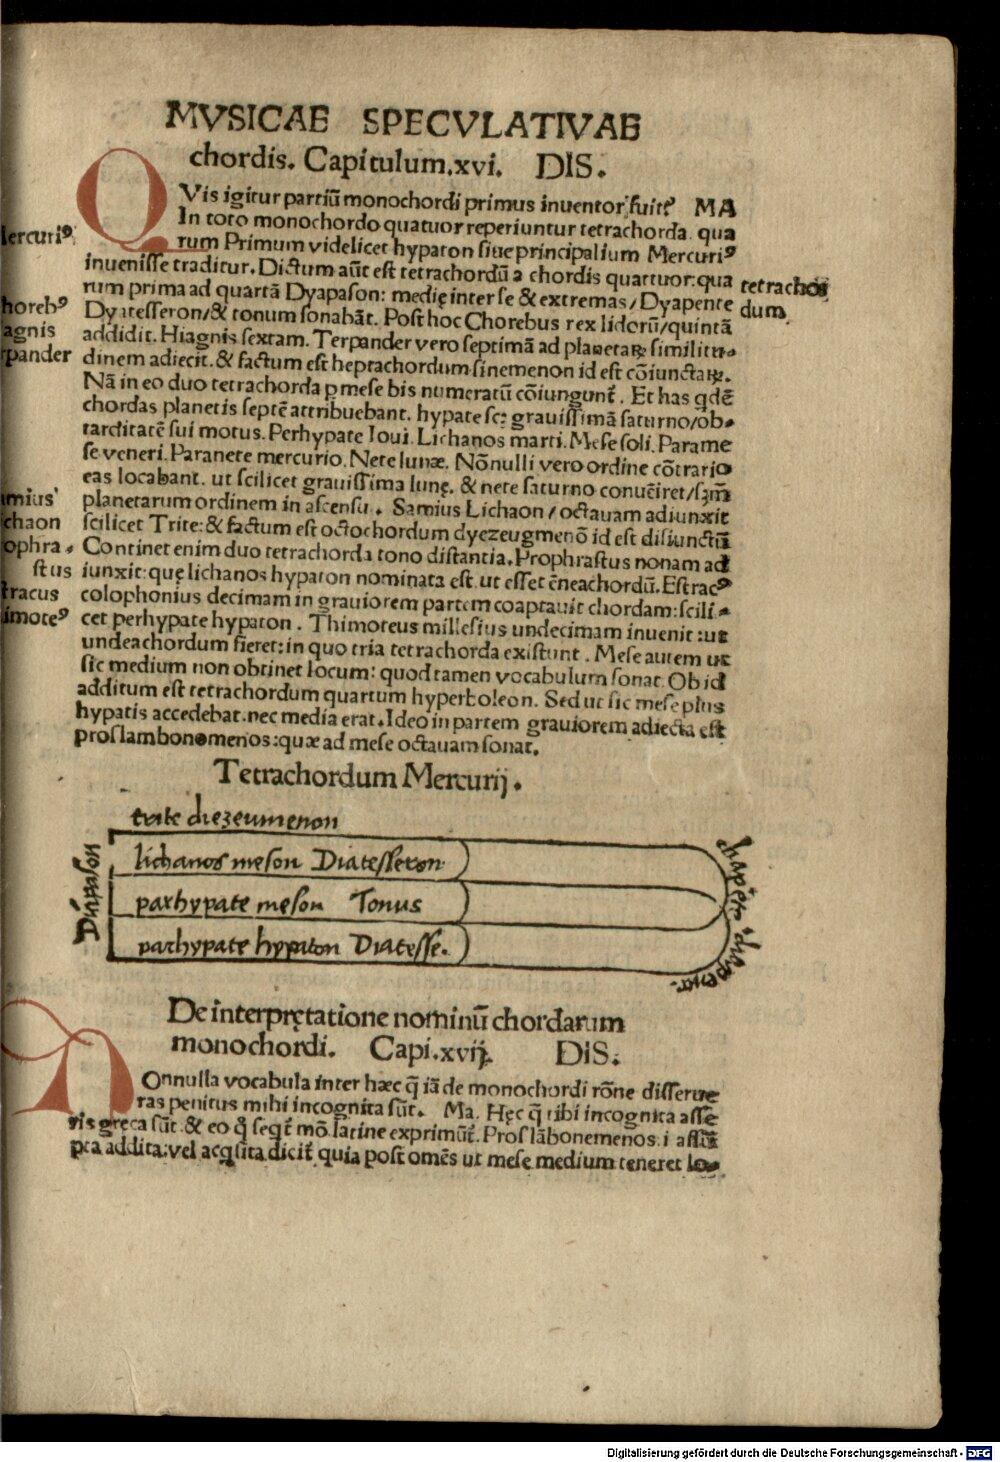 MVSICAE SPECVLATIVAE
chordis. Capitulum.xvi. DIS.
QVis igitur partiū monochordi primus inuentor fuit? MA
In toto monochordo quatuor reperiuntur tetrachorda. qua
lercuriꝰ
rum Primum videlicet hypaton siue principalium Mercuriꝰ
inuenisse traditur. Dictum aūt est tetrachordū a chordis quattuor: qua
tetrachor
rum prima ad quartā Dyapason: medię inter se & extremas/Dyapente
dum
horebꝰ
Dyatesseron/& tonum sonabāt. Post hoc Chorebus rex lidorū/quintā
agnis
addidit. Hiagnis sextam. Terpander vero septimā ad planetaꝝ similitu
rpander
dinem adiecit. & factum est heptachordum sinemenon id est cōiunctaꝝ.
Nā in eo duo tetrachorda p mese bis numeratū cōiungunt᷑. Et has qdē
chordas planetis septē attribuebant. hypate sc: grauissimā saturno/ob
tarditatē sui motus. Perhypate Ioui. Lichanos marti. Mese soli. Parame
se veneri. Paranete mercurio. Nete lunæ. Nōnulli vero ordine cōtrario
eas locabant. ut scilicet grauissima lunę. & nete saturno conuēiret/sꝫm
amius
planetarum ordinem in ascensu. Samius Lichaon/octauam adiunxit
chaon
scilicet Trite: & factum est octochordum dyezeugmenō id est disiunctū
ophra
Continet enim duo tetrachorda tono distantia. Prophrastus nonam ad
stus
iunxit: quę lichanos hypaton nominata est. ut esset ēneachordū. Estracꝰ
tracus
colophonius decimam in grauiorem partem coaptauit chordam: scili
imoteꝰ
cet perhypate hypaton. Thimoteus millesius undecimam inuenit: ut
undeachordum fieret: in quo tria tetrachorda existunt. Mese autem ut
sic medium non obtinet locum: quod tamen vocabulum sonat. Ob id
additum est tetrachordum quartum hyperboleon. Sed ut sic mese plus
hypatis accedebat. nec media erat. Ideo in partem grauiorem adiecta est
proslambonomenos: quæ ad mese octauam sonat.
Tetrachordum Mercurij.
trite diezeumenon
lichanos meson Diatesseron
parhypate meson Tonus
parhypate hypaton Diatesse.
Diapason
diapēte
diapente
De interprętatione nominū chordarum
monochordi. Capi.xvij. DIS.
NOnnulla vocabula inter hæc q̄ iā de monochordi rōne disserue
ras penitus mihi incognita sūt. Ma. Hęc q̄ tibi incognita asse
ris gręca sūt. & eo q̄ seqt᷑ mō latine exprimūt᷑. Proslābonemenos. i assū
pta addita: vel acqsita dicit᷑. quia post omēs ut mese medium teneret lo
Digitalisierung gefördert durch die Deutsche Forschungsgemeinschaft - DFG